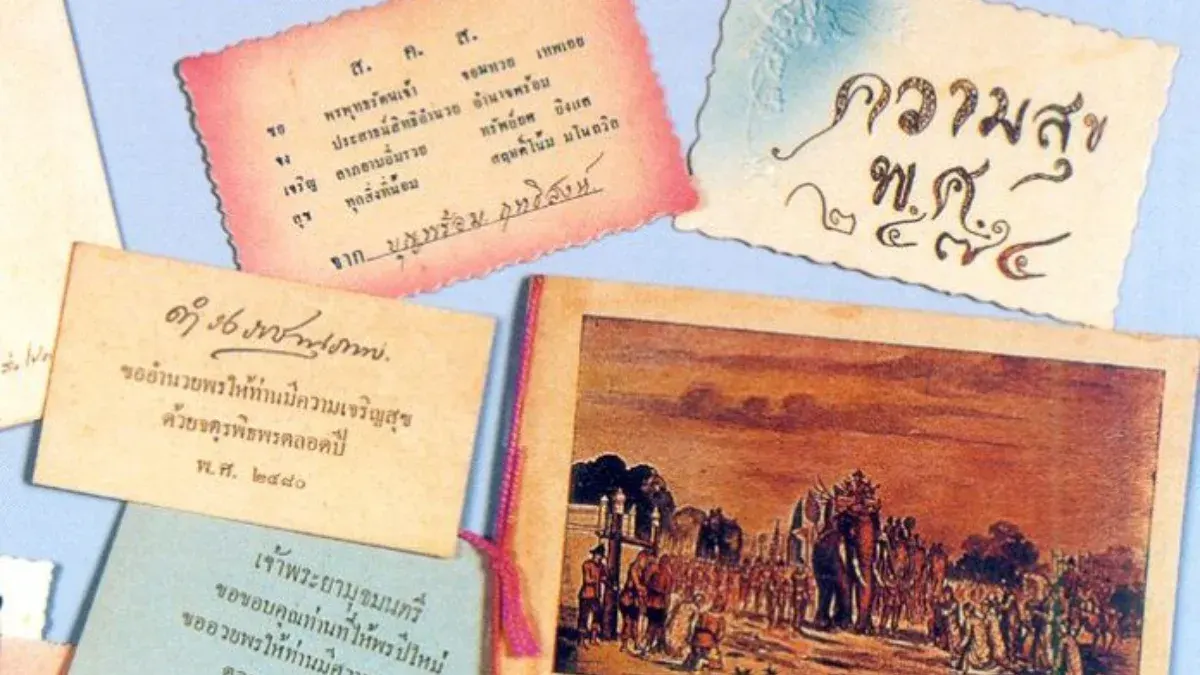 ส. ค. ส.
ขอ พรพุทธรัตนเจ้า จอมทวย เทพเอย
จง ประสาธน์สิทธิอำนวย อำนาจพร้อม
เจริญ ลาภยามอิ่มรวย ทรัพย์ยศ ยิ่งแฮ
สุข ทุกสิ่งที่น้อม สฤษดิ์โน้ม มโนถวิล
จาก บุญพร้อม ฤทธิสงห์.
ความสุข
พ.ศ.
๒๔๗๕
ดำรงราชานุภาพ.
ขออำนวยพรให้ท่านมีความเจริญสุข
ด้วยจตุรพิธพรตลอดปี
พ.ศ. ๒๔๘๐
เจ้าพระยามุขมนตรี
ขอขอบคุณท่านที่ให้พรปีใหม่
ขออวยพรให้ท่านมีความ